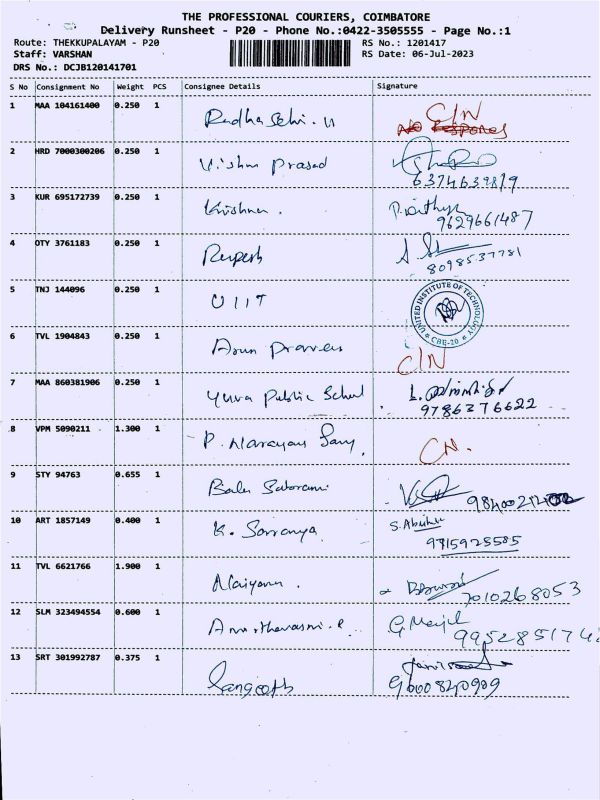 THE PROFESSIONAL COURIERS, COIMBATORE
Delivery Runsheet - P20 - Phone No.:0422-3505555 - Page No.:1
Route: THEKKUPALAYAM - P20 RS No.: 1201417
Staff: VARSHAN RS Date: 06-Jul-2023
DRS No.: DCJB120141701
S No Consignment No Weight PCS Consignee Details Signature
1 MAA 104161400 0.250 1 C/N
2 HRD 7000300206 0.250 1 Vishnu Prasad
6374639819
3 KUR 695172739 0.250 1 Krishnan .
9629661487
4 OTY 3761183 0.250 1 Rupesh
8098537781
5 TNJ 144096 0.250 1 U I I T UNITED INSTITUTE OF TECHNOLOGY
CBE-20
6 TVL 1904843 0.250 1 Arun Praveen C/N
7 MAA 860381906 0.250 1 Yuva Public School
9786376622
8 VPM 5090211 1.300 1 P. Narayan Samy CN.
9 STY 94763 0.655 1
10 ART 1857149 0.400 1 K. Saranya
9715925585
11 TVL 6621766 1.900 1
7010268053
12 SLM 323494554 0.600 1
13 SRT 301992787 0.375 1 Sangeeth
9600840909